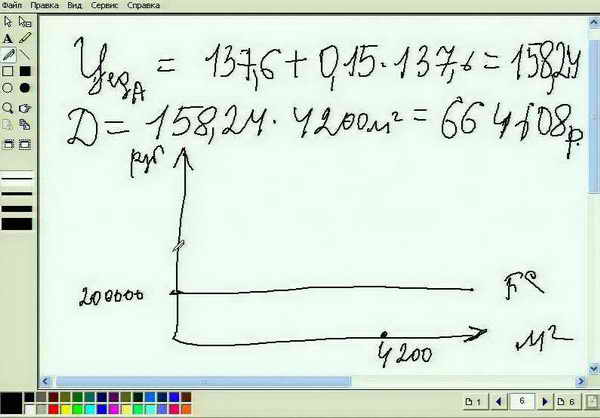 Файл Правка Вид Сервис Справка
Цед А = 137,6 + 0,15 · 137,6 = 158,24
Д = 158,24 · 4200 м² = 664608 р.
руб
200000
FC
4200
м²
1
6
6